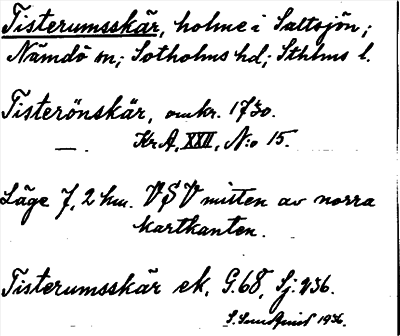 Tisterumsskär, holme i Saltsjön;
Nämdö sn; Sotholms hd; Sthlms l.
Tisterönskär, omkr. 1730.
— . Kr.A, XXII, N:o 15.
Läge 7,2 km. VSV mitten av norra
kartkanten.
Tisterumsskär ek, G.68, Sj. 236.
S. Sundquist 1936.